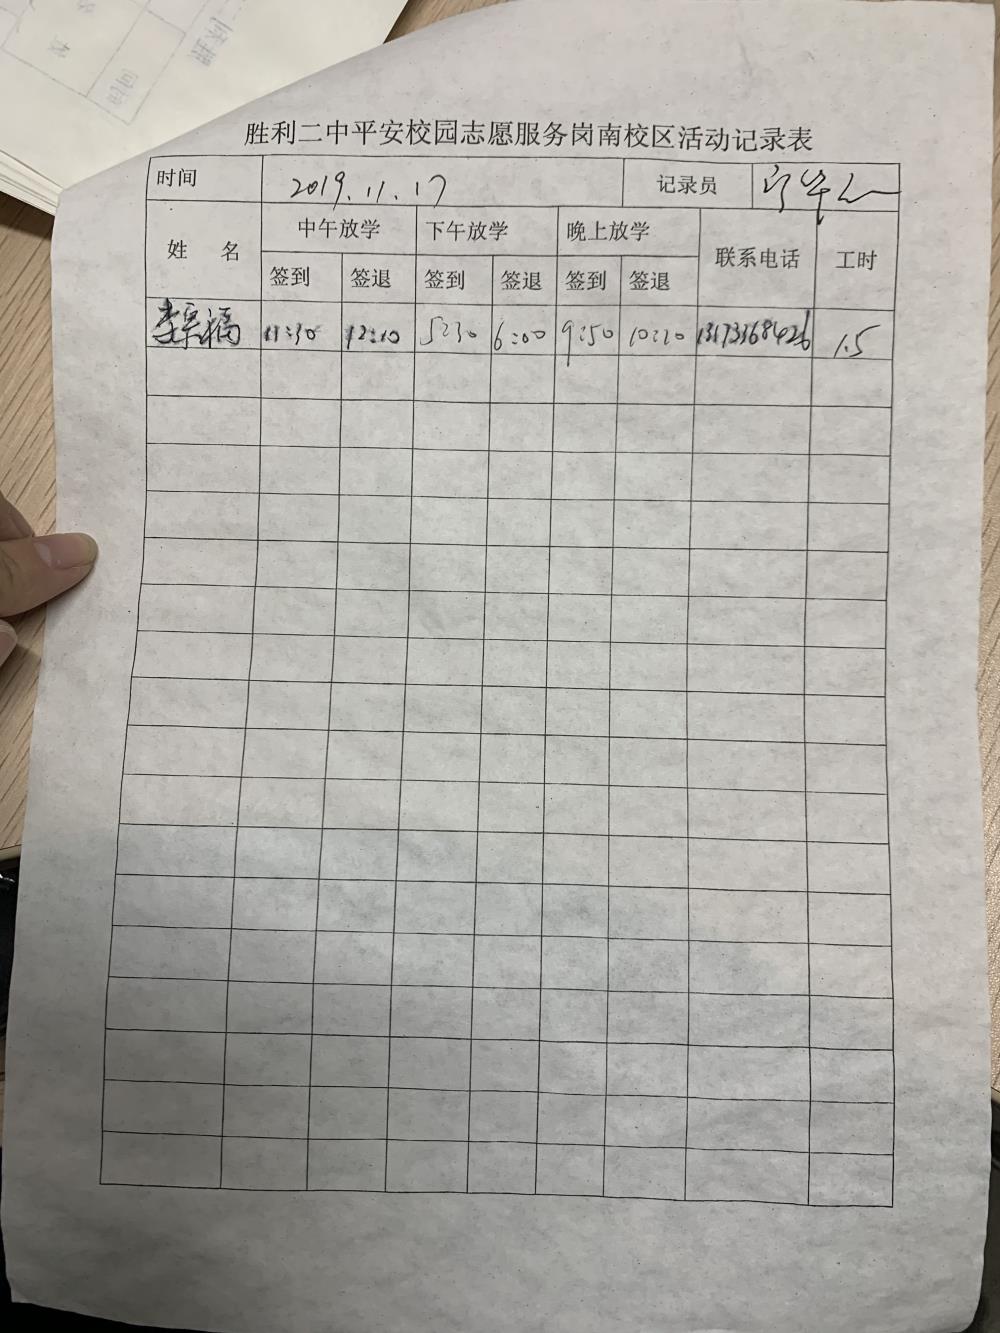 胜利二中平安校园志愿服务岗南校区活动记录表
时间 2019.11.17 记录员
姓 名 中午放学 下午放学 晚上放学 联系电话 工时
签到 签退 签到 签退 签到 签退
11:30 12:10 5:30 6:00 9:50 10:20 1.5